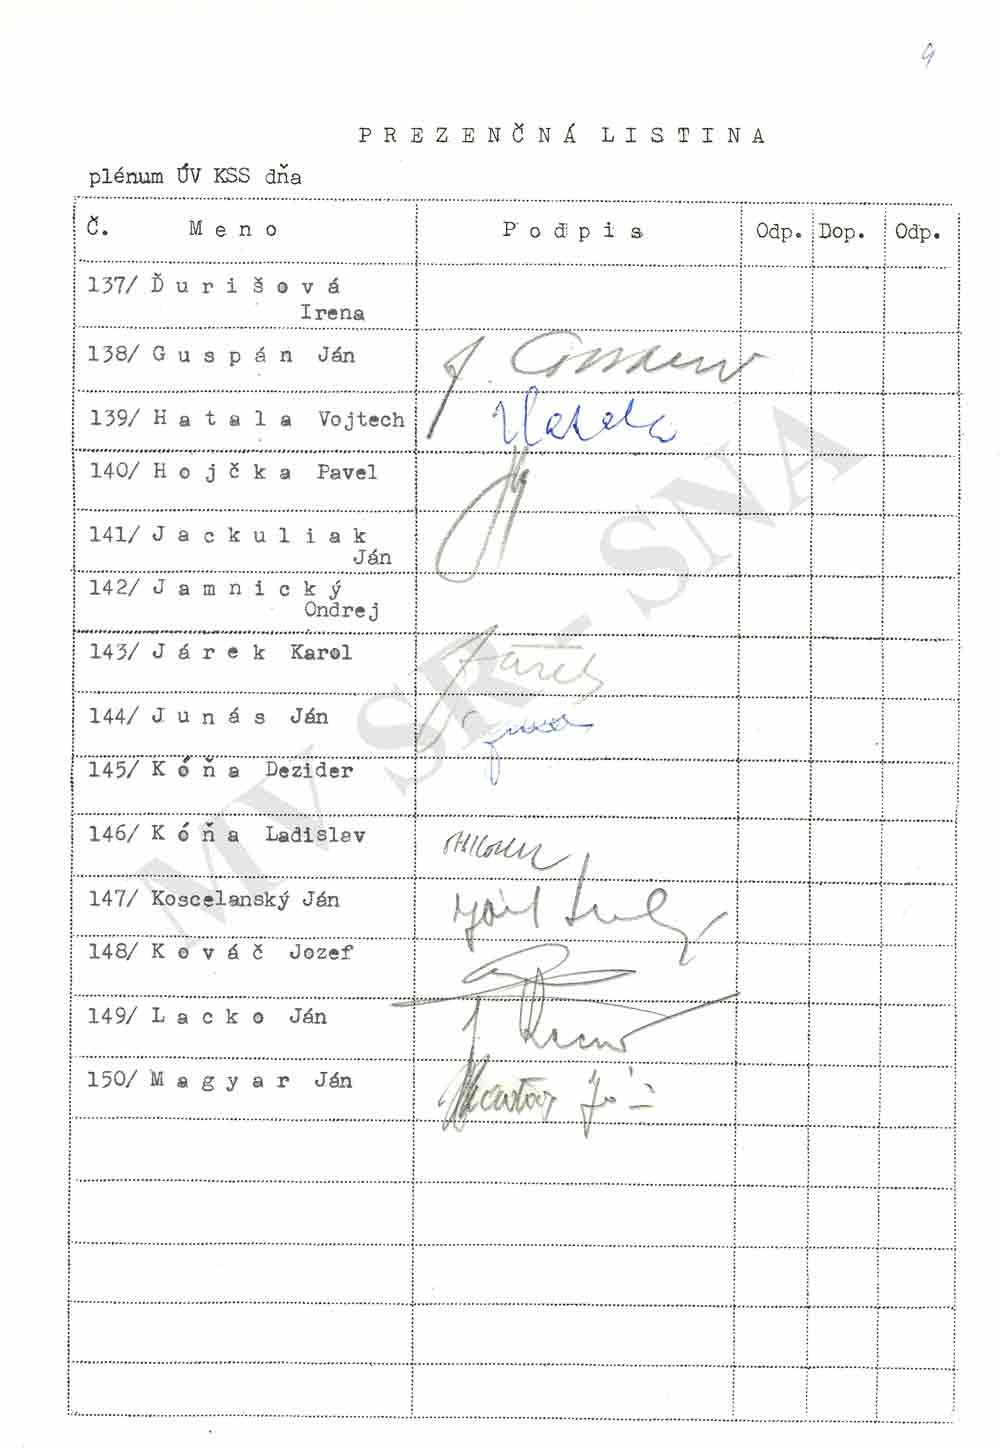 9
PREZENČNÁ LISTINA
plénum ÚV KSS dňa
Č. Meno Podpis Odp. Dop. Odp.
137/ Ďurišová
Irena
138/ Guspán Ján
139/ Hatala Vojtech Hatala
140/ Hojčka Pavel
141/ Jackuliak
Ján
142/ Jamnický
Ondrej
143/ Járek Karol Járek
144/ Junás Ján
145/ Kóňa Dezider
146/ Kóňa Ladislav
147/ Koscelanský Ján
148/ Kováč Jozef
149/ Lacko Ján
150/ Magyar Ján
MV SR - SNA